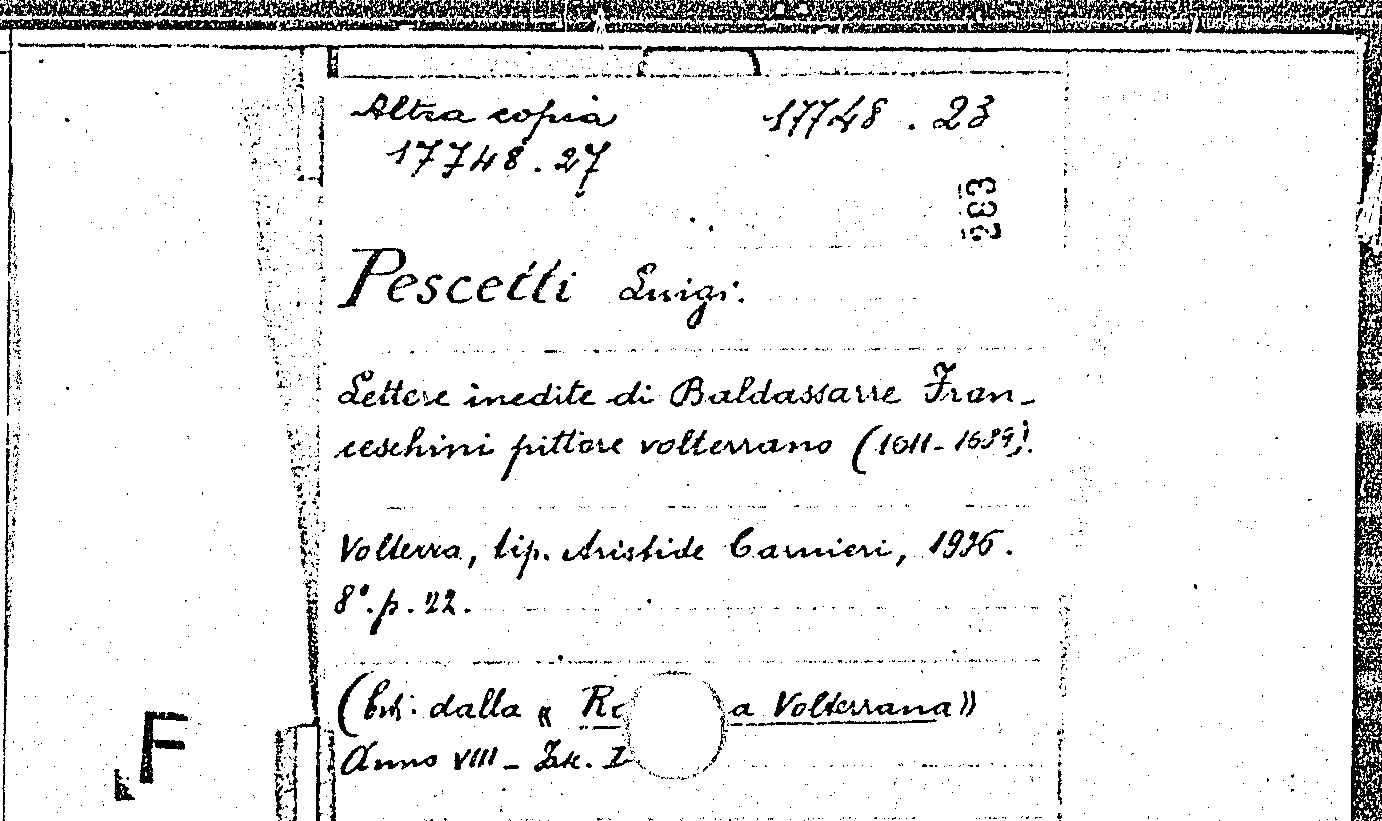 Altra copia 17748.23
17748.27
283
Pescetti Luigi.
Lettere inedite di Baldassarre Fran-
ceschini pittore volterrano (1611-1689).
Volterra, tip. Aristide Carnieri, 1936.
8°. p. 22.
(Est. dalla « a Volterrana»
Anno VIII -
F